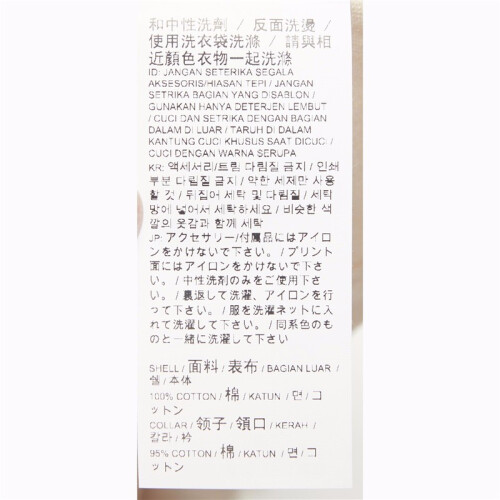 和中性洗劑 / 反面洗燙 /
使用洗衣袋洗滌 / 請與相
近顏色衣物一起洗滌
ID: JANGAN SETERIKA SEGALA
AKSESORIS/HIASAN TEPI / JANGAN
SETRIKA BAGIAN YANG DISABLON /
GUNAKAN HANYA DETERJEN LEMBUT
/ CUCI DAN SETRIKA DENGAN BAGIAN
DALAM DI LUAR / TARUH DI DALAM
KANTUNG CUCI KHUSUS SAAT DICUCI /
CUCI DENGAN WARNA SERUPA
KR: 액세서리/트림 다림질 금지 / 인쇄
부분 다림질 금지 / 약한 세제만 사용
할 것 / 뒤집어 세탁 및 다림질 / 세탁
망에 넣어서 세탁하세요 / 비슷한 색
깔의 옷감과 함께 세탁
JP: アクセサリー/付属品にはアイロ
ンをかけないで下さい。 / プリント
面にはアイロンをかけないで下さ
い。 / 中性洗剤のみをご使用下さ
い。 / 裏返して洗濯、アイロンを行
って下さい。 / 服を洗濯ネットに入
れて洗濯して下さい。 / 同系色のも
のと一緒に洗濯して下さい
SHELL / 面料 / 表布 / BAGIAN LUAR /
쉘 / 本体
100% COTTON / 棉 / KATUN / 면 / コ
ットン
COLLAR / 领子 / 領口 / KERAH /
칼라 / 衿
95% COTTON / 棉 / KATUN / 면 / コ
ットン